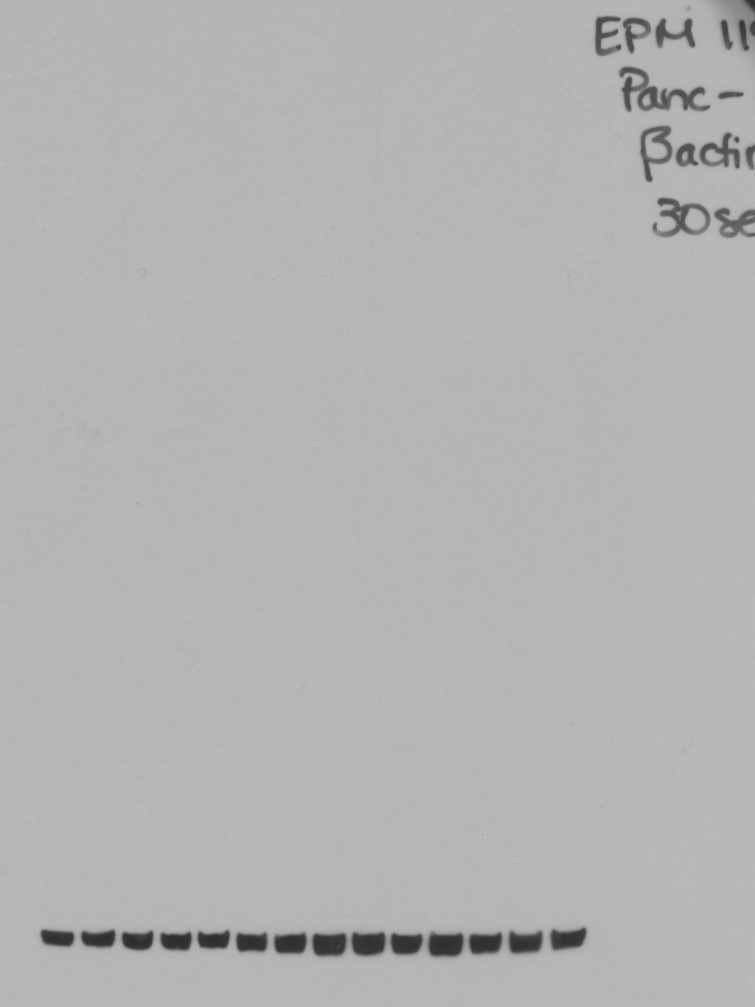 EPM 11
Panc-
βactin
30se